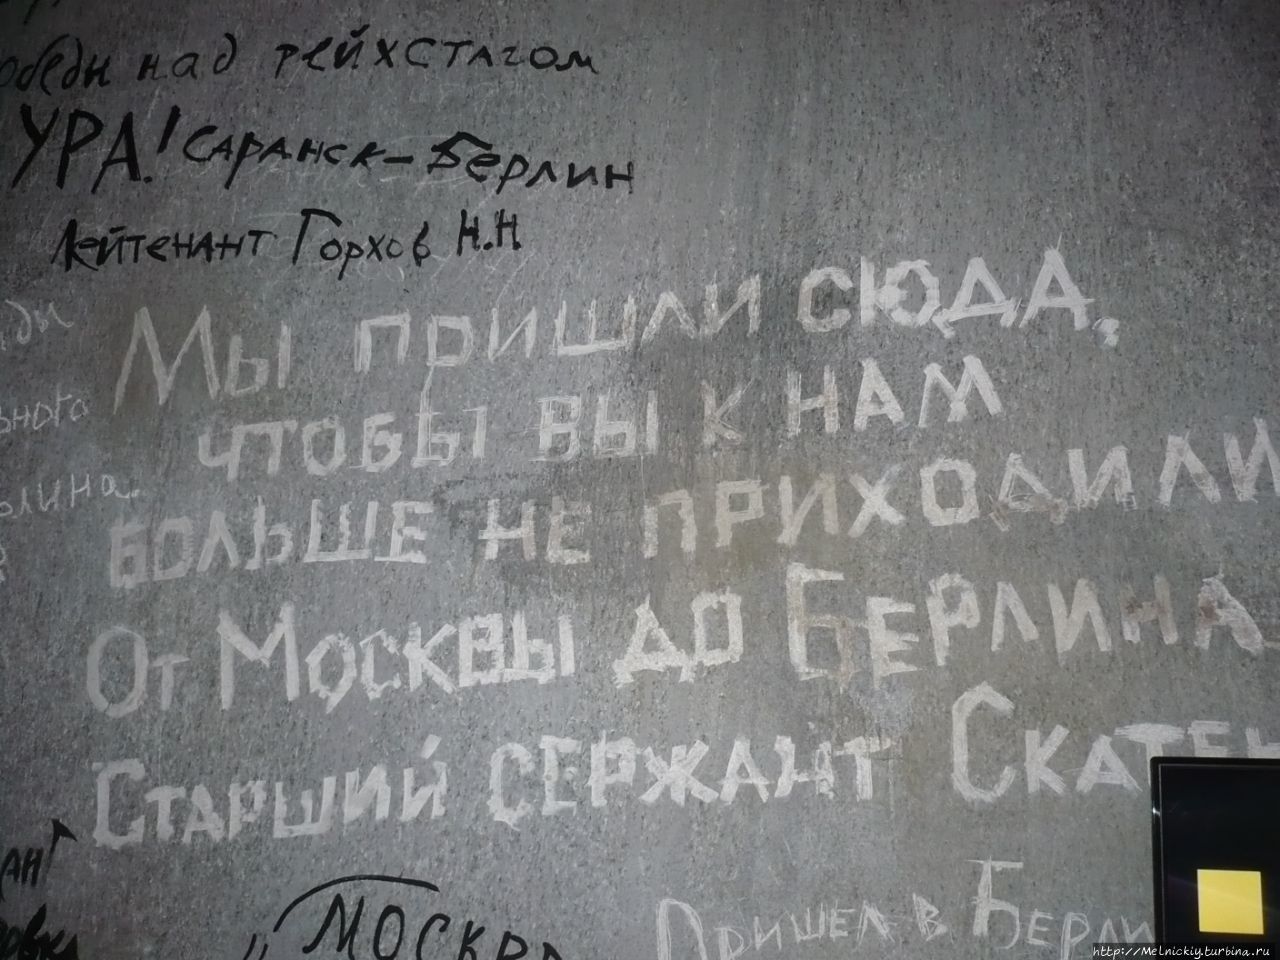 над рейхстагом
УРА! Саранск-Берлин
Лейтенант Горхов Н.Н.
Мы пришли сюда,
чтобы вы к нам
больше не приходили
От Москвы до Берлина
Старший сержант
Москва
Пришел в
http://Melnickiy.turbina.ru